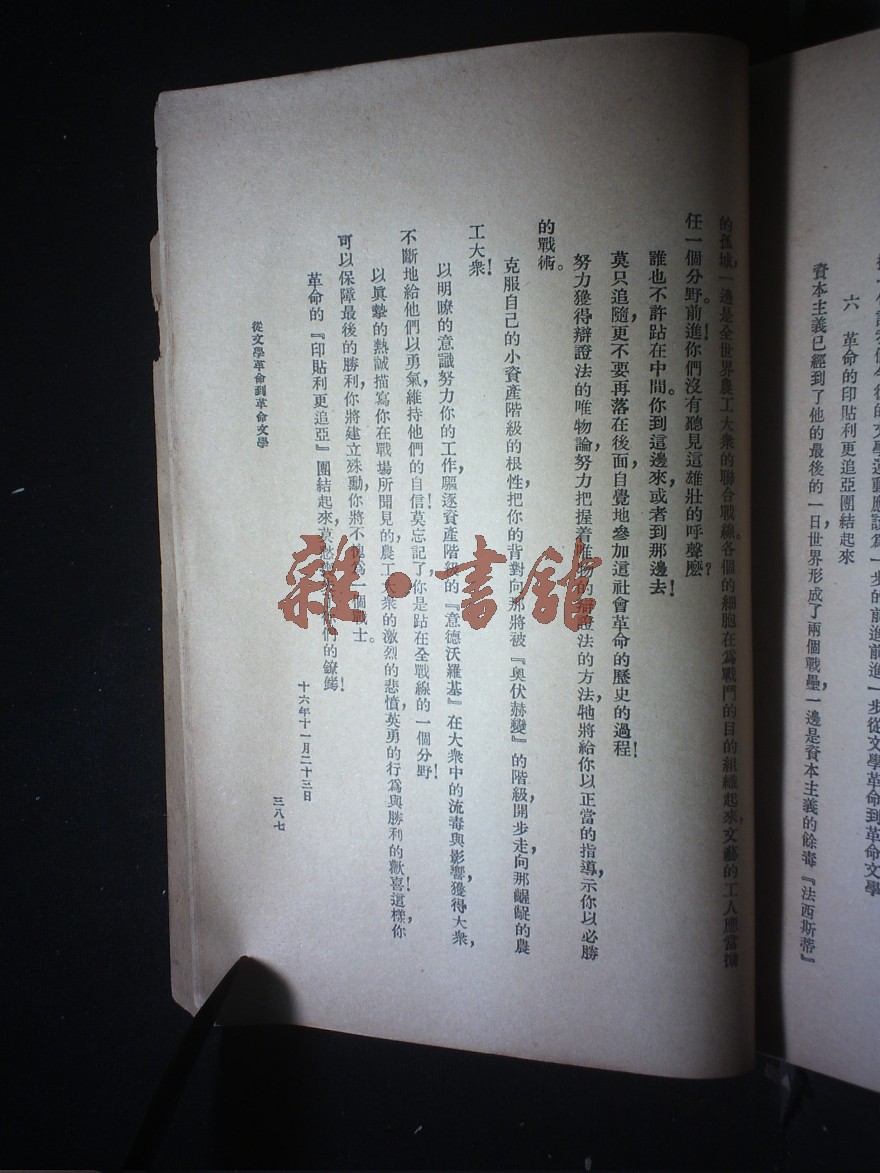 六　革命的印貼利更追亞團結起來
資本主義已經到了他的最後的一日，世界形成了兩個戰壘，一邊是資本主義的餘毒『法西斯蒂』
的孤城，一邊是全世界農工大衆的聯合戰線。各個的細胞在為戰鬥的目的組織起來，文藝的工人應當
任一個分野。前進！你們沒有聽見這雄壯的呼聲麽？
誰也不許跕在中間。你到這邊來，或者到那邊去！
莫只追隨，更不要再落在後面，自覺地參加這社會革命的歷史的過程！
努力獲得辯證法的唯物論，努力把握着唯物的辯證法的方法，牠將給你以正當的指導，示你以必勝
的戰術。
克服自己的小資產階級的根性，把你的背對向那將被『奧伏赫變』的階級，開步走，向那齷齪的農
工大衆！
以明瞭的意識努力你的工作，驅逐資產階級的『意德沃羅基』在大衆中的流毒與影響，獲得大衆，
不斷地給他們以勇氣，維持他們的自信！莫忘記了，你是跕在全戰線的一個分野！
以眞摯的熱誠描寫你在戰場所聞見的，農工大衆的激烈的悲憤，英勇的行爲與勝利的歡喜！這樣，你
可以保障最後的勝利；你將建立殊勳，你將不愧爲一個戰士。
革命的『印貼利更追亞』團結起來，莫愁 們的鐐鍔！
十六年十一月二十三日
從文學革命到革命文學
三八七
雜·書館